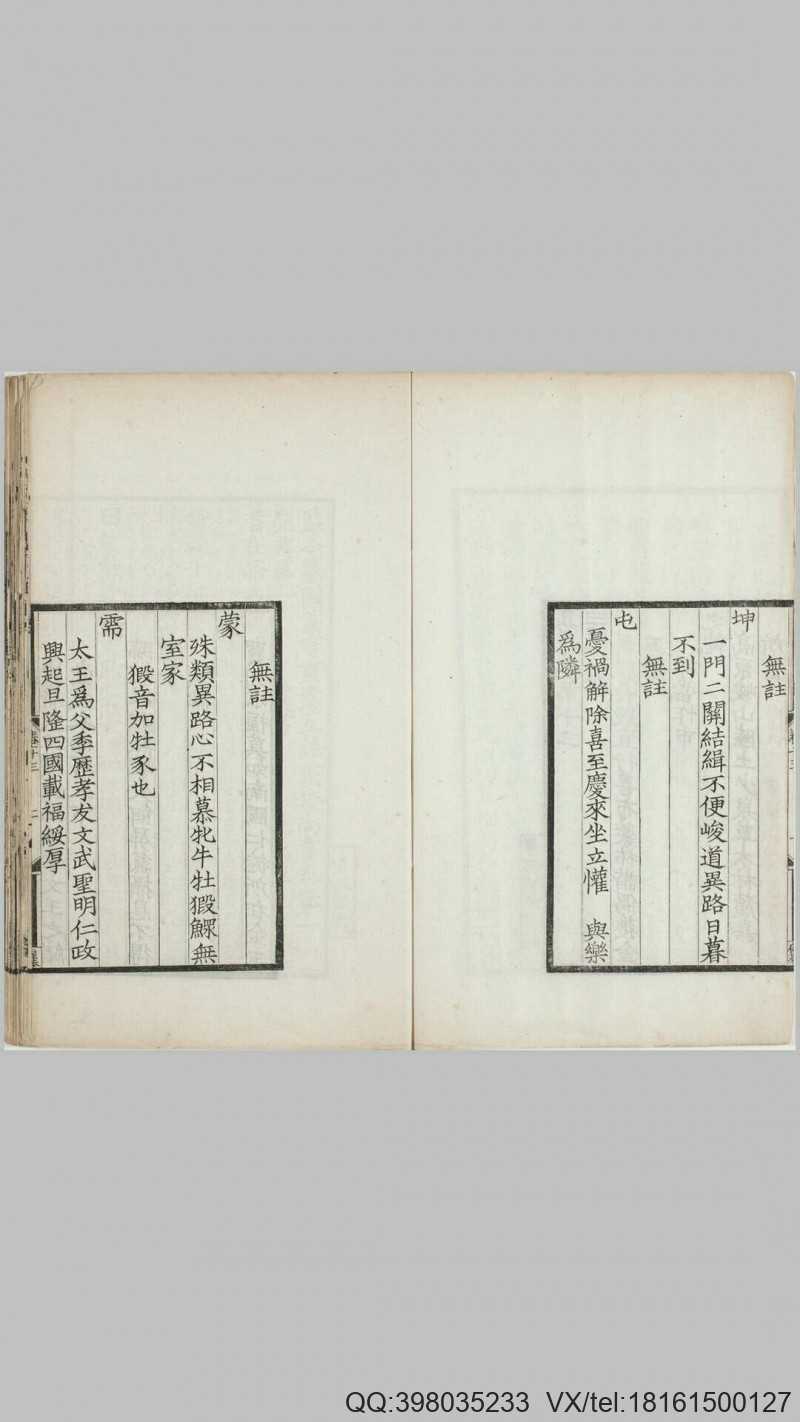 無註
坤
一門二關結緝不便峻道異路日暮
不到
無註
屯
憂禍解除喜至慶來坐立懽 與樂
爲隣
無註
蒙
殊類異路心不相慕牝牛牡猳鰥無
室家
猳音加牡豕也
需
太王爲父季歷孝友文武聖明仁政
興起旦隆四國載福綏厚
QQ:398035233 VX/tel:18161500127